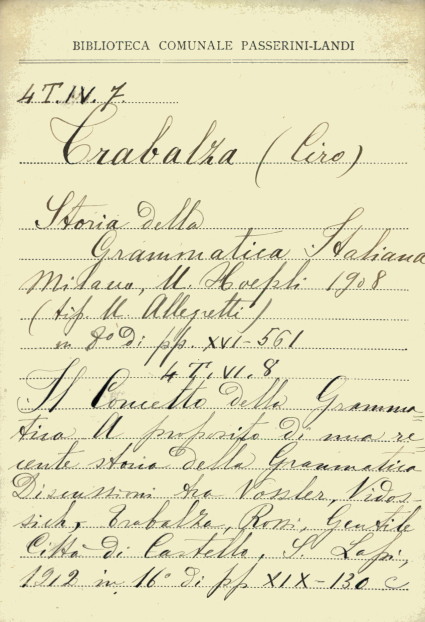 BIBLIOTECA COMUNALE PASSERINI-LANDI
4T.IV.7.
Trabalza (Ciro)
Storia della
Grammatica Italiana
Milano, U. Hoepli 1908
(tip. U. Allegretti)
in 8° di pp. XVI-561
4T.VI.8
Il Concetto della Gramma-
tica A proposito di una re-
cente storia della Grammatica
Discussioni tra Vossler, Vidos-
sich, Trabalza, Rossi, Gentile
Città di Castello, S. Lapi,
1912 in 16° di pp XIX-130